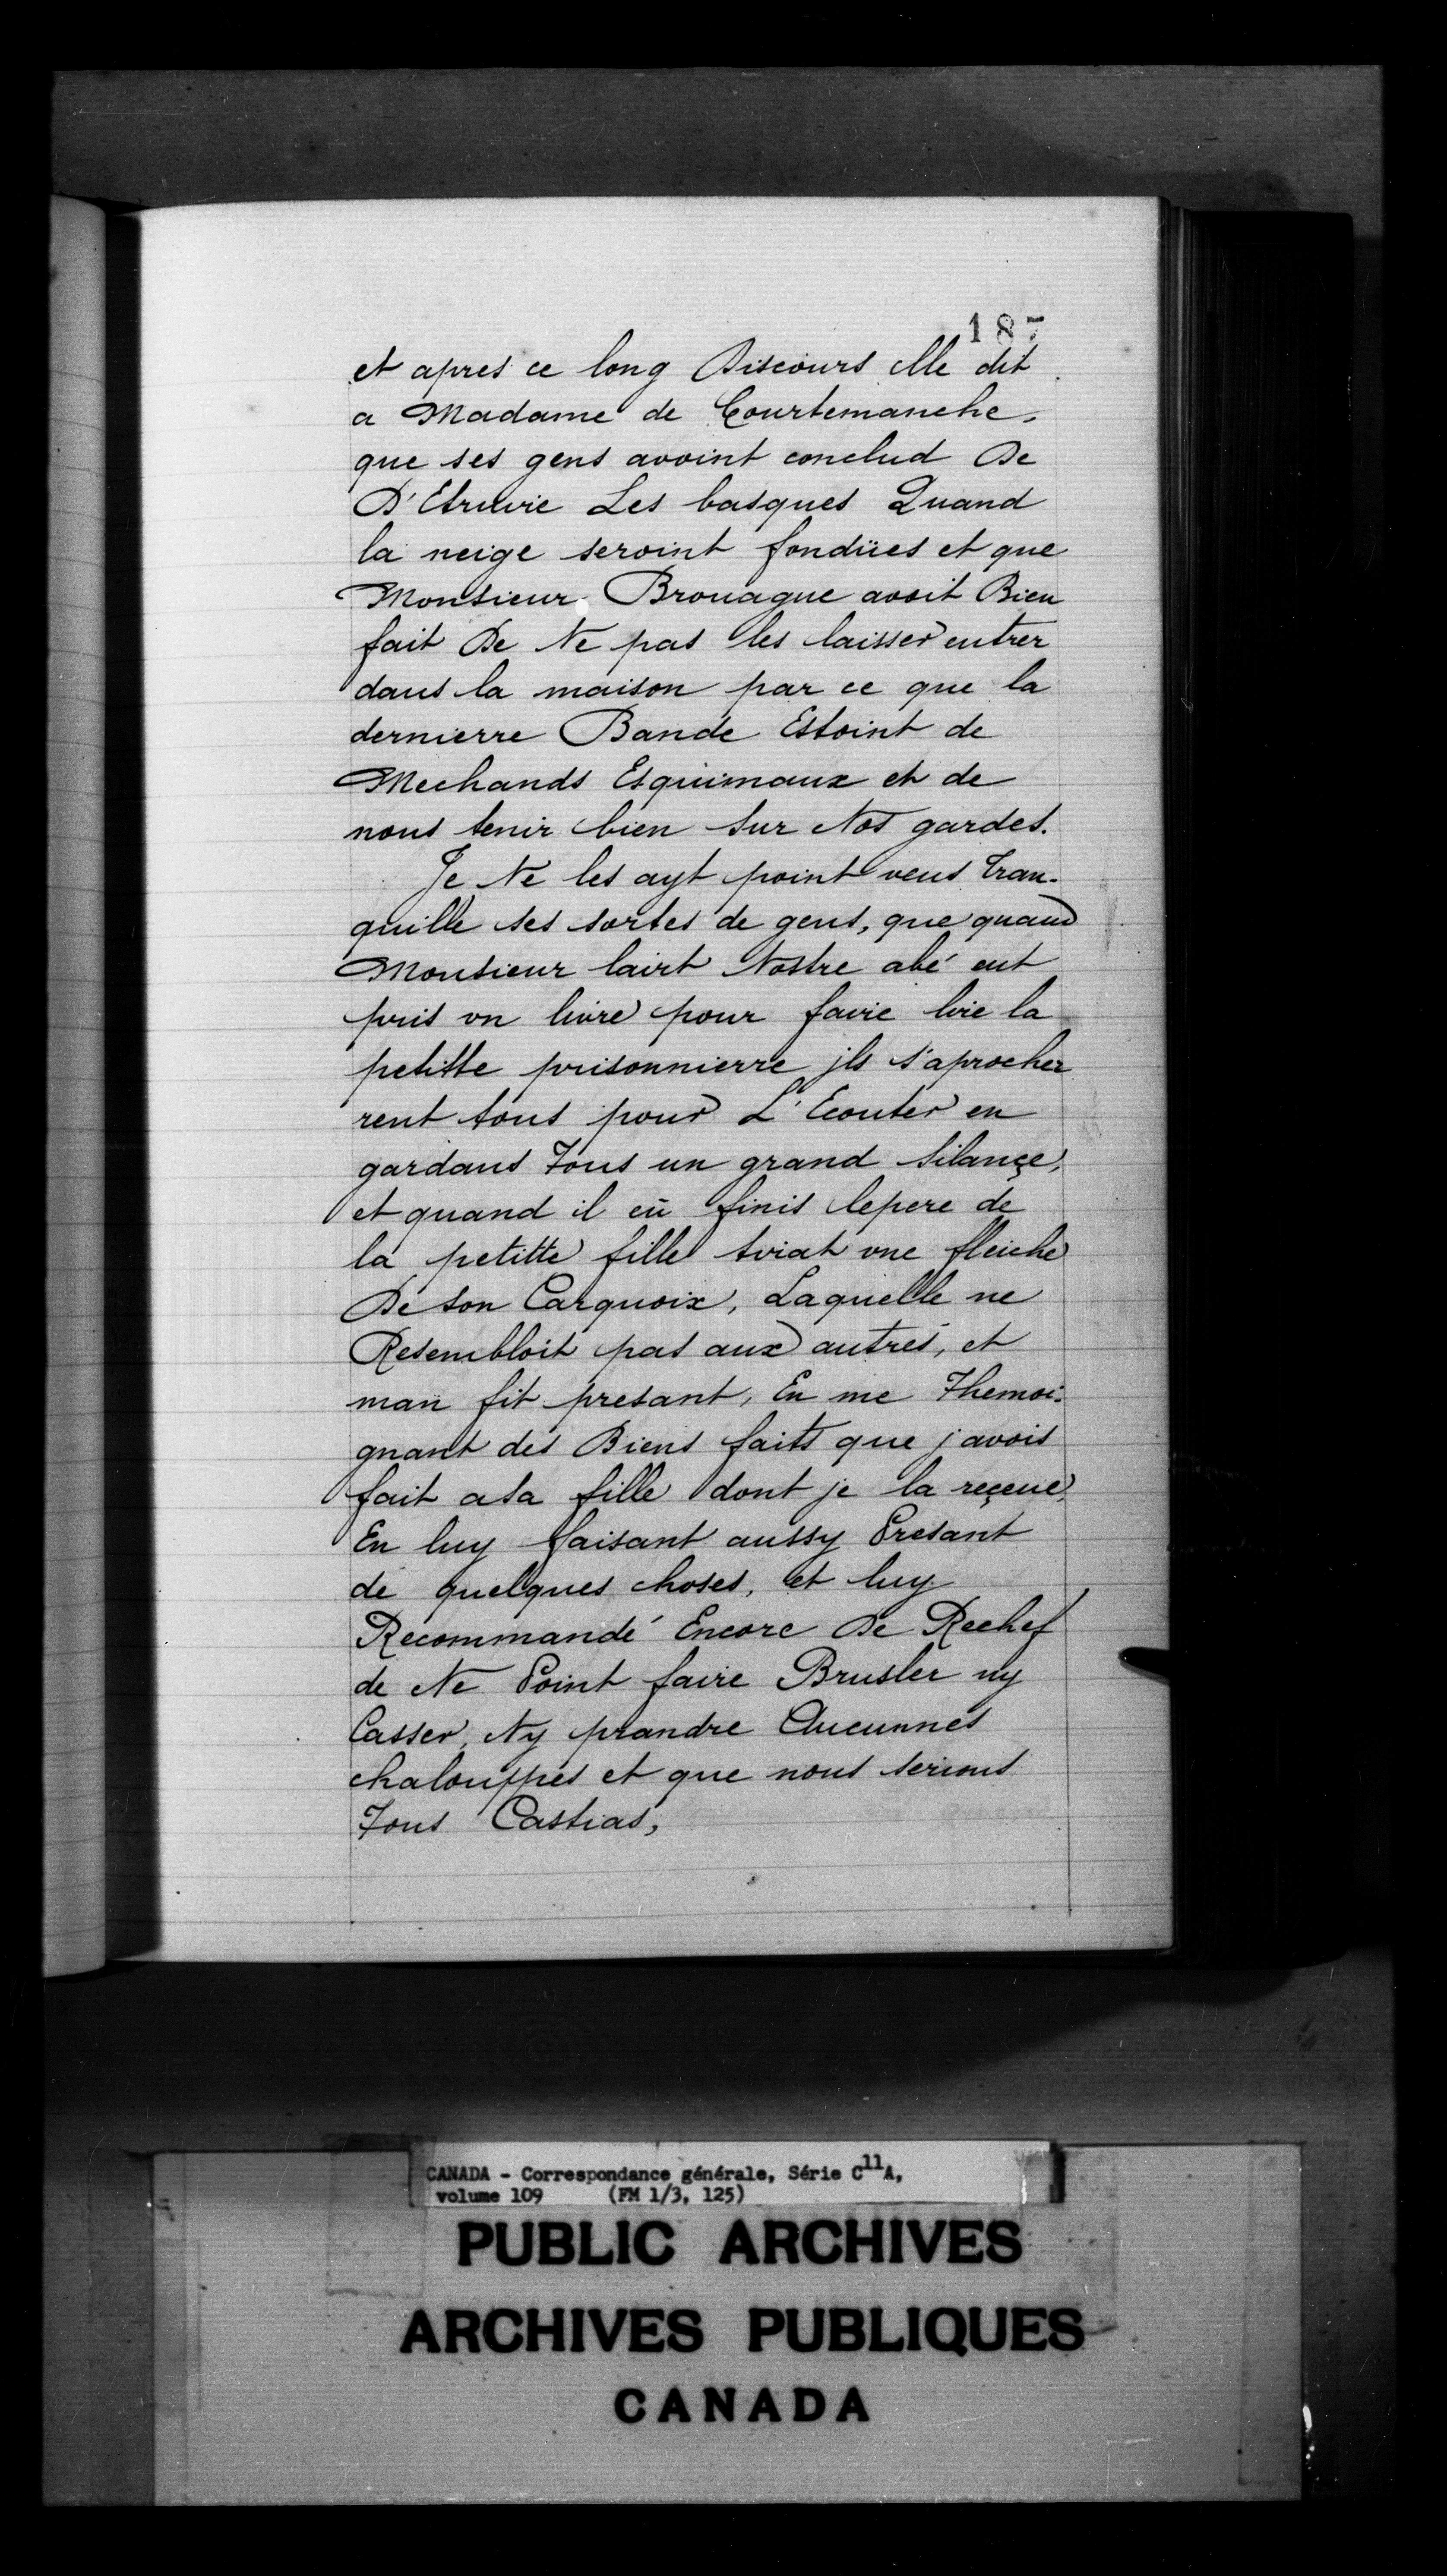 187
et apres ce long Discours elle dit
a Madame de Courtemanche,
que ses gens avoint conclud De
D'Etruire Les basques Quand
la neige seroint fondües et que
Monsieur Brouague avoit Bien
fait De Ne pas les laisser entrer
dans la maison par ce que la
dernierre Bande Estoint de
Mechands Esquimaux et de
nous tenir bien sur Nos gardes.
Je Ne les ayt point veus tran-
quille ses sortes de gens, que quand
Monsieur lairt Nostre abé eut
pris vn livre pour faire lire la
petitte prisonnierre jls s'aprocher
rent tous pour L'Ecouter en
gardans Tous un grand silançe,
et quand il eü finis lepere de
la petitte fille tirat vne fleiche
De son Carquoix, Laquelle ne
Resembloit pas aux autres, et
man fit presant, En me Themoi-
gnant des Biens faits que j'avois
fait a sa fille dont je la reçeue,
En luy faisant aussy Presant
de quelques choses, et luy
Recommandé Encore De Rechef
de Ne Point faire Brusler ny
Casser, Ny prandre Aucunnes
chalouppes et que nous serions
Tous Castias,
CANADA - Correspondance générale, Série C11A,
volume 109 (FM 1/3, 125)
PUBLIC ARCHIVES
ARCHIVES PUBLIQUES
CANADA